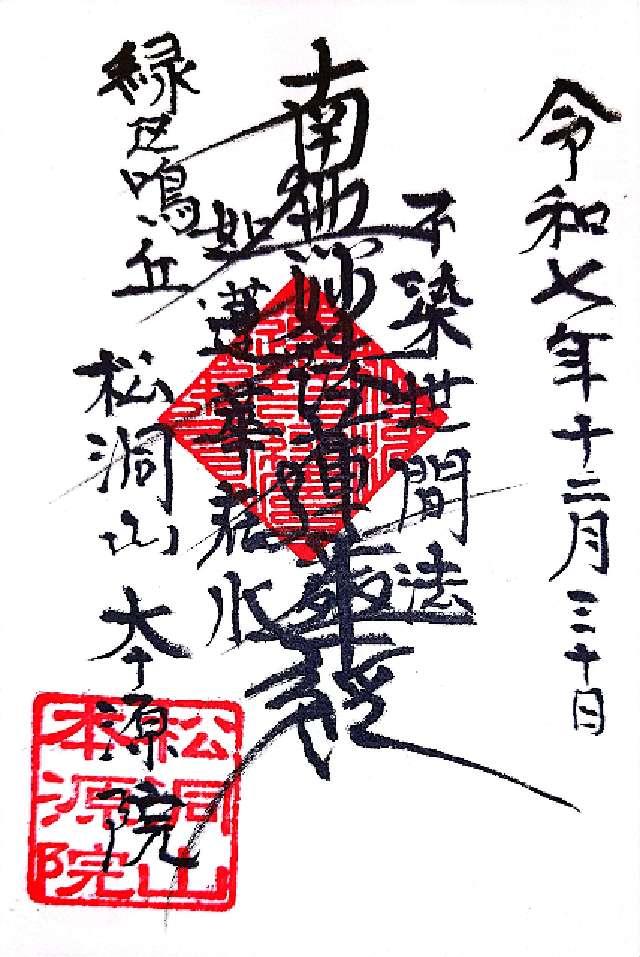 令和七年十二月三十日
不染世間法
南無妙法蓮華経
如蓮華在水
緑区鳴丘
松洞山 本源院
松洞山
本源院